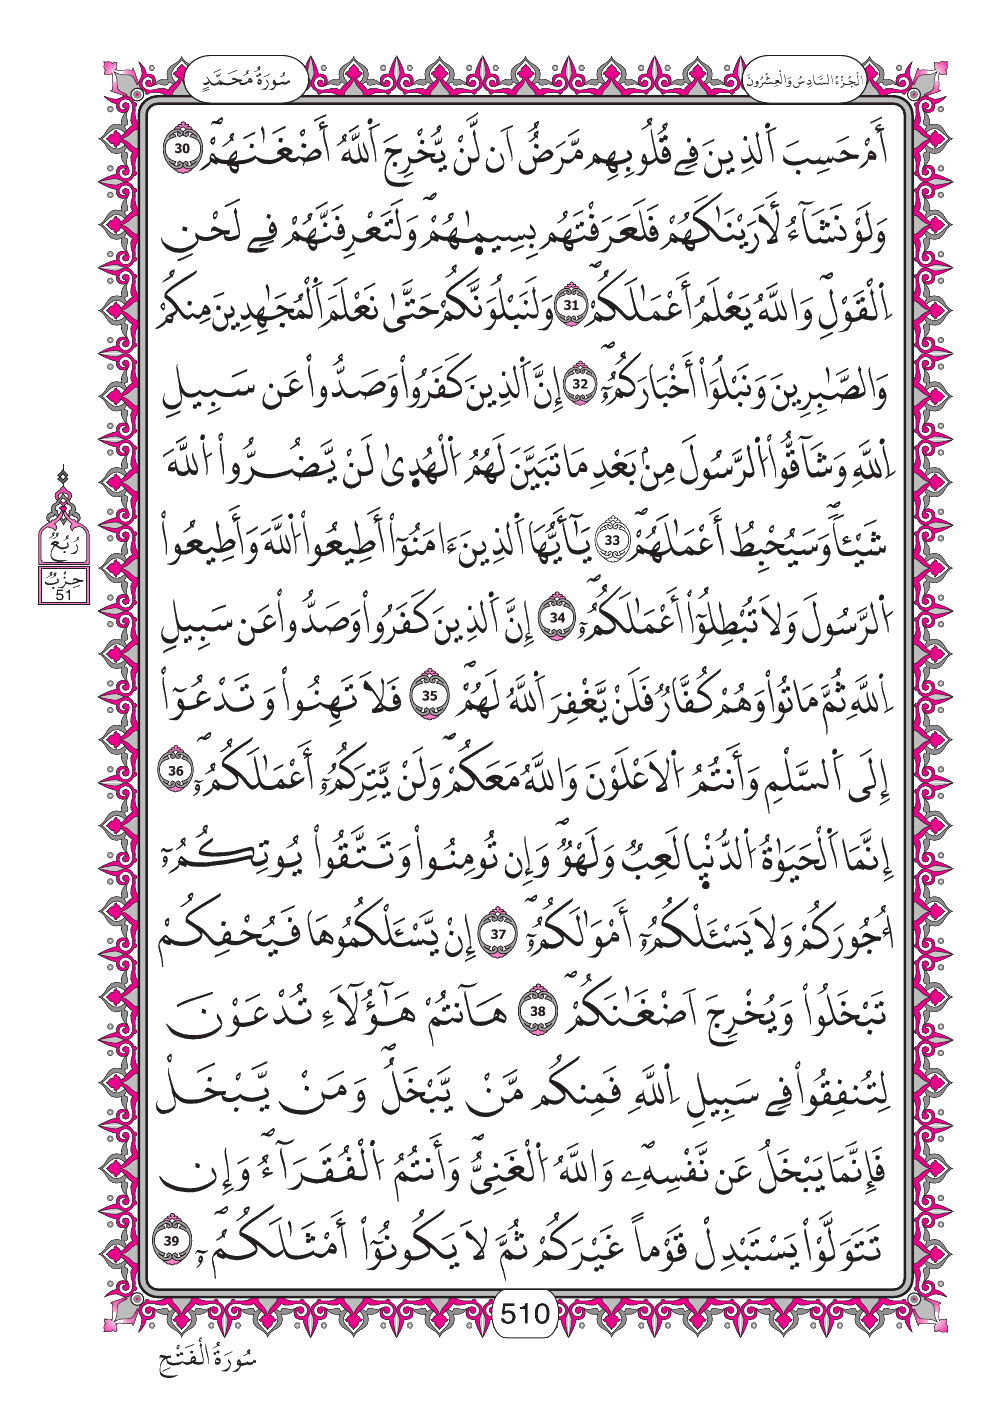 سُورَةُ مُحَمَّدٍ
الْجُزْءُ السَّادِسُ وَالْعِشْرُونَ
أَمْ حَسِبَ اَ۬لذِينَ فِے قُلُوبِهِم مَّرَضٌ اَن لَّنْ يُّخْرِجَ اَ۬للَّهُ أَضْغَٰنَهُمْۖ 30
وَلَوْ نَشَآءُ لَأَرَيْنَٰكَهُمْ فَلَعَرَفْتَهُم بِسِيمٰ۪هُمْۖ وَلَتَعْرِفَنَّهُمْ فِے لَحْنِ
اِ۬لْقَوْلِۖ وَاللَّهُ يَعْلَمُ أَعْمَٰلَكُمْۖ 31 وَلَنَبْلُوَنَّكُمْ حَتَّىٰ نَعْلَمَ اَ۬لْمُجَٰهِدِينَ مِنكُمْ
وَالصَّٰبِرِينَ وَنَبْلُوَا۟ أَخْبَارَكُمُۥٓۖ 32 إِنَّ اَ۬لذِينَ كَفَرُوا۟ وَصَدُّوا۟ عَن سَبِيلِ
اِ۬للَّهِ وَشَآقُّوا۟ اُ۬لرَّسُولَ مِنۢ بَعْدِ مَا تَبَيَّنَ لَهُمُ اُ۬لْهُد۪ىٰ لَنْ يَّضُرُّوا۟ اُ۬للَّهَ
شَيْـٔاٗۖ وَسَيُحْبِطُ أَعْمَٰلَهُمْۖ 33 يَٰٓأَيُّهَا اَ۬لذِينَ ءَامَنُوٓا۟ أَطِيعُوا۟ اُ۬للَّهَ وَأَطِيعُوا۟
اُ۬لرَّسُولَ وَلَا تُبْطِلُوٓا۟ أَعْمَٰلَكُمُۥٓۖ 34 إِنَّ اَ۬لذِينَ كَفَرُوا۟ وَصَدُّوا۟ عَن سَبِيلِ
اِ۬للَّهِ ثُمَّ مَاتُوا۟ وَهُمْ كُفَّارٌ فَلَنْ يَّغْفِرَ اَ۬للَّهُ لَهُمْۖ 35 فَلَا تَهِنُوا۟ وَتَدْعُوٓا۟
إِلَى اَ۬لسَّلْمِ وَأَنتُمُ اُ۬لَاعْلَوْنَ وَاللَّهُ مَعَكُمْۖ وَلَنْ يَّتِرَكُمُۥٓ أَعْمَٰلَكُمُۥٓۖ 36
إِنَّمَا اَ۬لْحَيَوٰةُ اُ۬لدُّنْي۪ا لَعِبٌ وَلَهْوٌۖ وَإِن تُومِنُوا۟ وَتَتَّقُوا۟ يُوتِكُمُۥٓ
أُجُورَكُمْ وَلَا يَسْـَٔلْكُمُۥٓ أَمْوَٰلَكُمُۥٓۖ 37 إِنْ يَّسْـَٔلْكُمُوهَا فَيُحْفِكُمْ
تَبْخَلُوا۟ وَيُخْرِجَ اَضْغَٰنَكُمْۖ 38 هَآنتُمْ هَٰٓؤُلَآءِ تُدْعَوْنَ
لِتُنفِقُوا۟ فِے سَبِيلِ اِ۬للَّهِ فَمِنكُم مَّنْ يَّبْخَلُۖ وَمَنْ يَّبْخَلْ
فَإِنَّمَا يَبْخَلُ عَن نَّفْسِهِۦۖ وَاللَّهُ اُ۬لْغَنِىُّۖ وَأَنتُمُ اُ۬لْفُقَرَآءُۖ وَإِن
تَتَوَلَّوْا۟ يَسْتَبْدِلْ قَوْماً غَيْرَكُمْ ثُمَّ لَا يَكُونُوٓا۟ أَمْثَٰلَكُمُۥۖ 39
رُبُعُ
حِزْبُ
51
510
سُورَةُ الْفَتْحِ